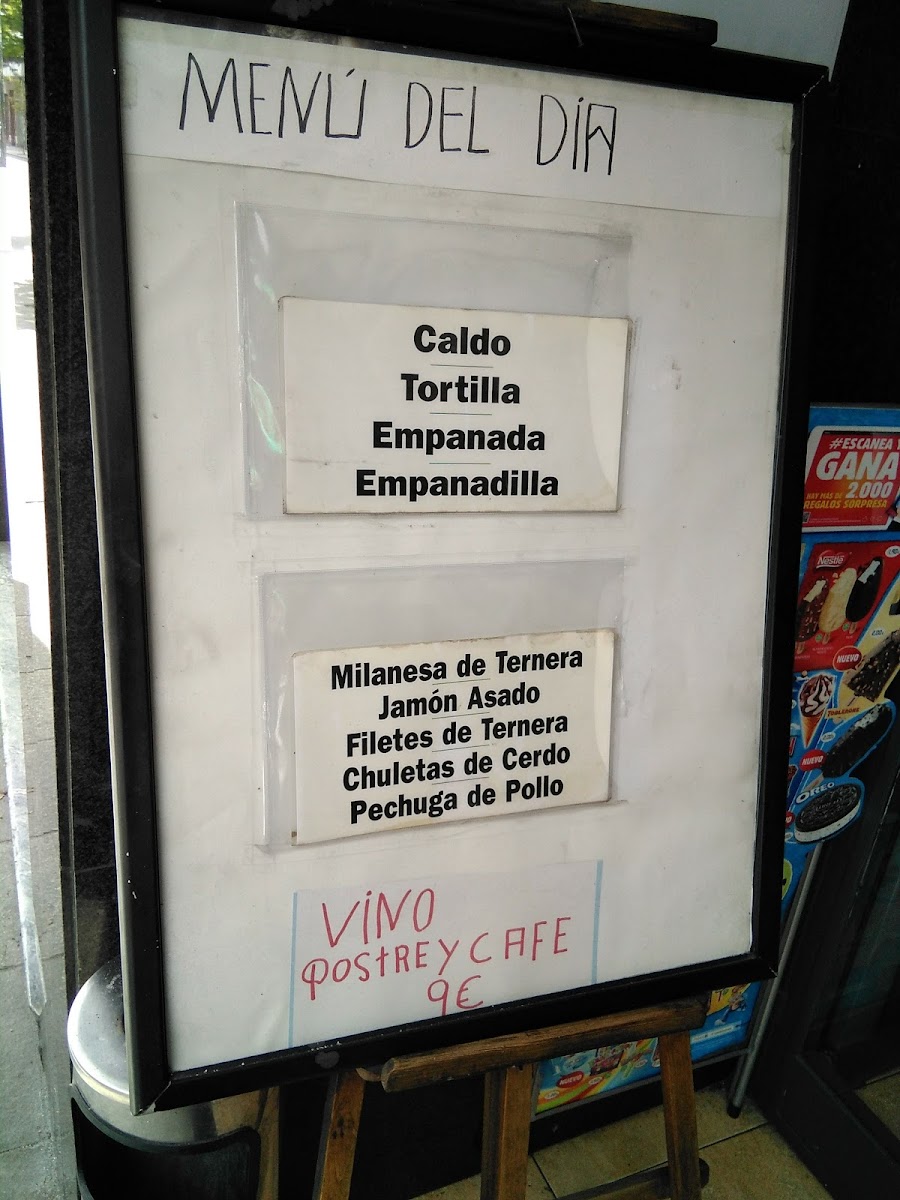 MENÚ DEL DíA
Caldo
Tortilla
Empanada
Empanadilla
Milanesa de Ternera
Jamón Asado
Filetes de Ternera
Chuletas de Cerdo
Pechuga de Pollo
ViNO
POStRE Y CAFE
9€
#ESCANEA Y
GANA
HAY MÁS DE 2.000
REGALOS SORPRESA
Nestlé
NUEVO
TOBLERONE
NUEVO
OREO
NUEVO